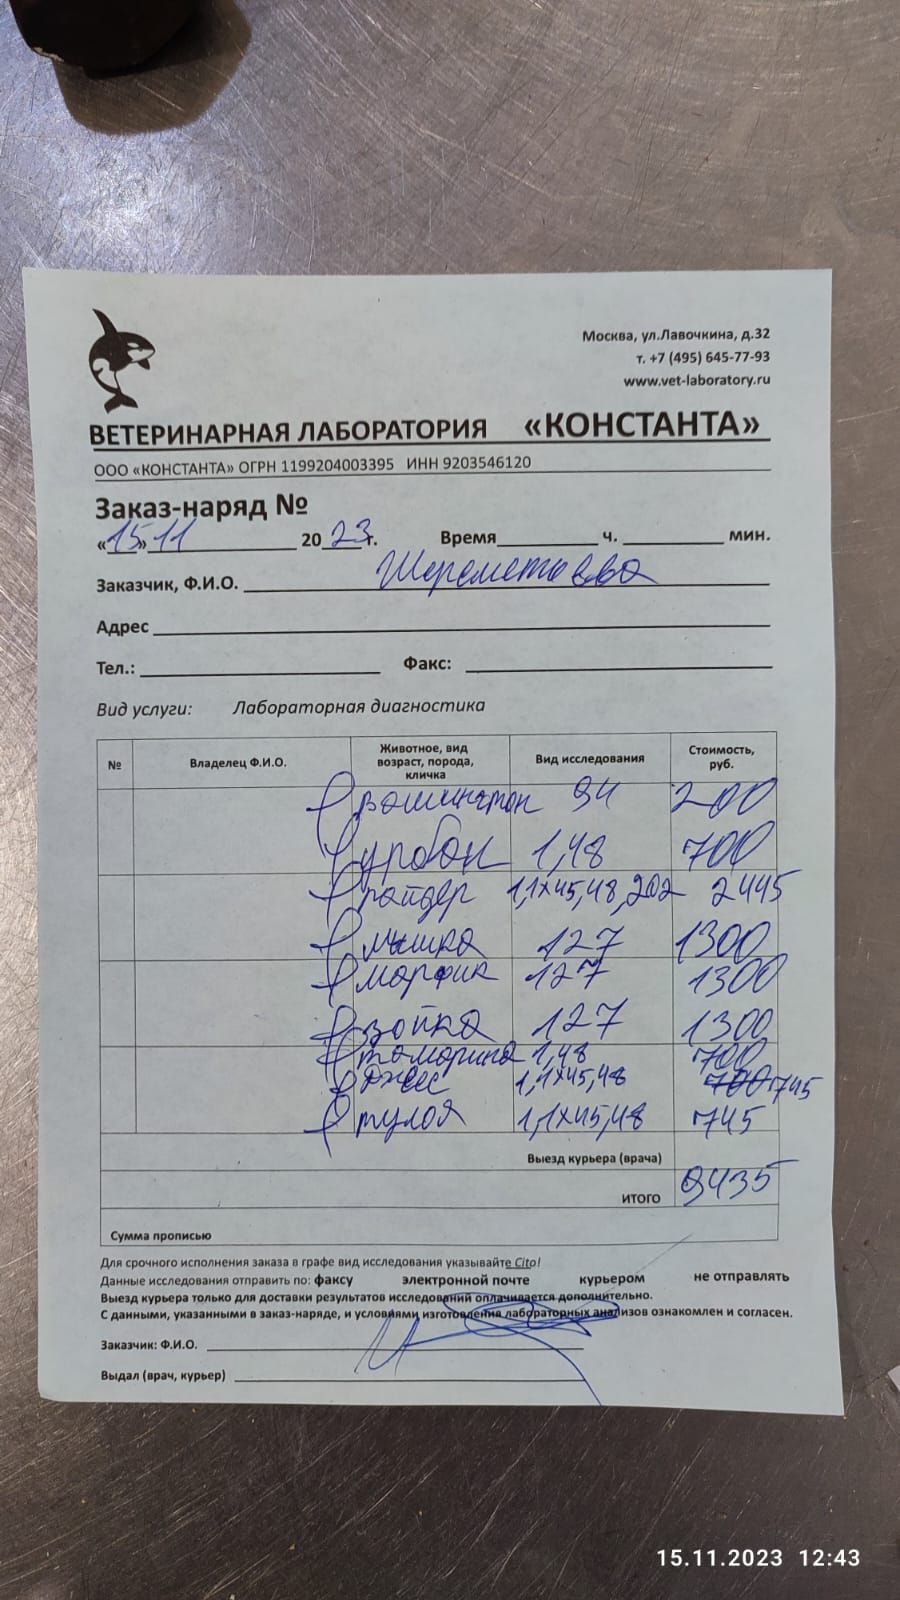 Москва, ул.Лавочкина, д.32
т. +7 (495) 645-77-93
www.vet-laboratory.ru
ВЕТЕРИНАРНАЯ ЛАБОРАТОРИЯ «КОНСТАНТА»
ООО «КОНСТАНТА» ОГРН 1199204003395 ИНН 9203546120
Заказ-наряд №
«15» 11 2023г. Время ч. мин.
Заказчик, Ф.И.О. Шереметьева
Адрес
Тел.: Факс:
Вид услуги: Лабораторная диагностика
№ Владелец Ф.И.О. Животное, вид возраст, порода, кличка Вид исследования Стоимость, руб.
вашингтон 94 200
урбан 1,48 700
райдер 1,1х45,48,202 2445
мышка 127 1300
марфик 127 1300
зойка 127 1300
тамарина 1,48 700
джес 1,1х45,48 700 745
тулоя 1,1х45,48 745
Выезд курьера (врача)
ИТОГО 9435
Сумма прописью
Для срочного исполнения заказа в графе вид исследования указывайте Cito!
Данные исследования отправить по: факсу электронной почте курьером не отправлять
Выезд курьера только для доставки результатов исследований оплачивается дополнительно.
С данными, указанными в заказ-наряде, и условиями изготовления лабораторных анализов ознакомлен и согласен.
Заказчик: Ф.И.О.
Выдал (врач, курьер)
15.11.2023 12:43